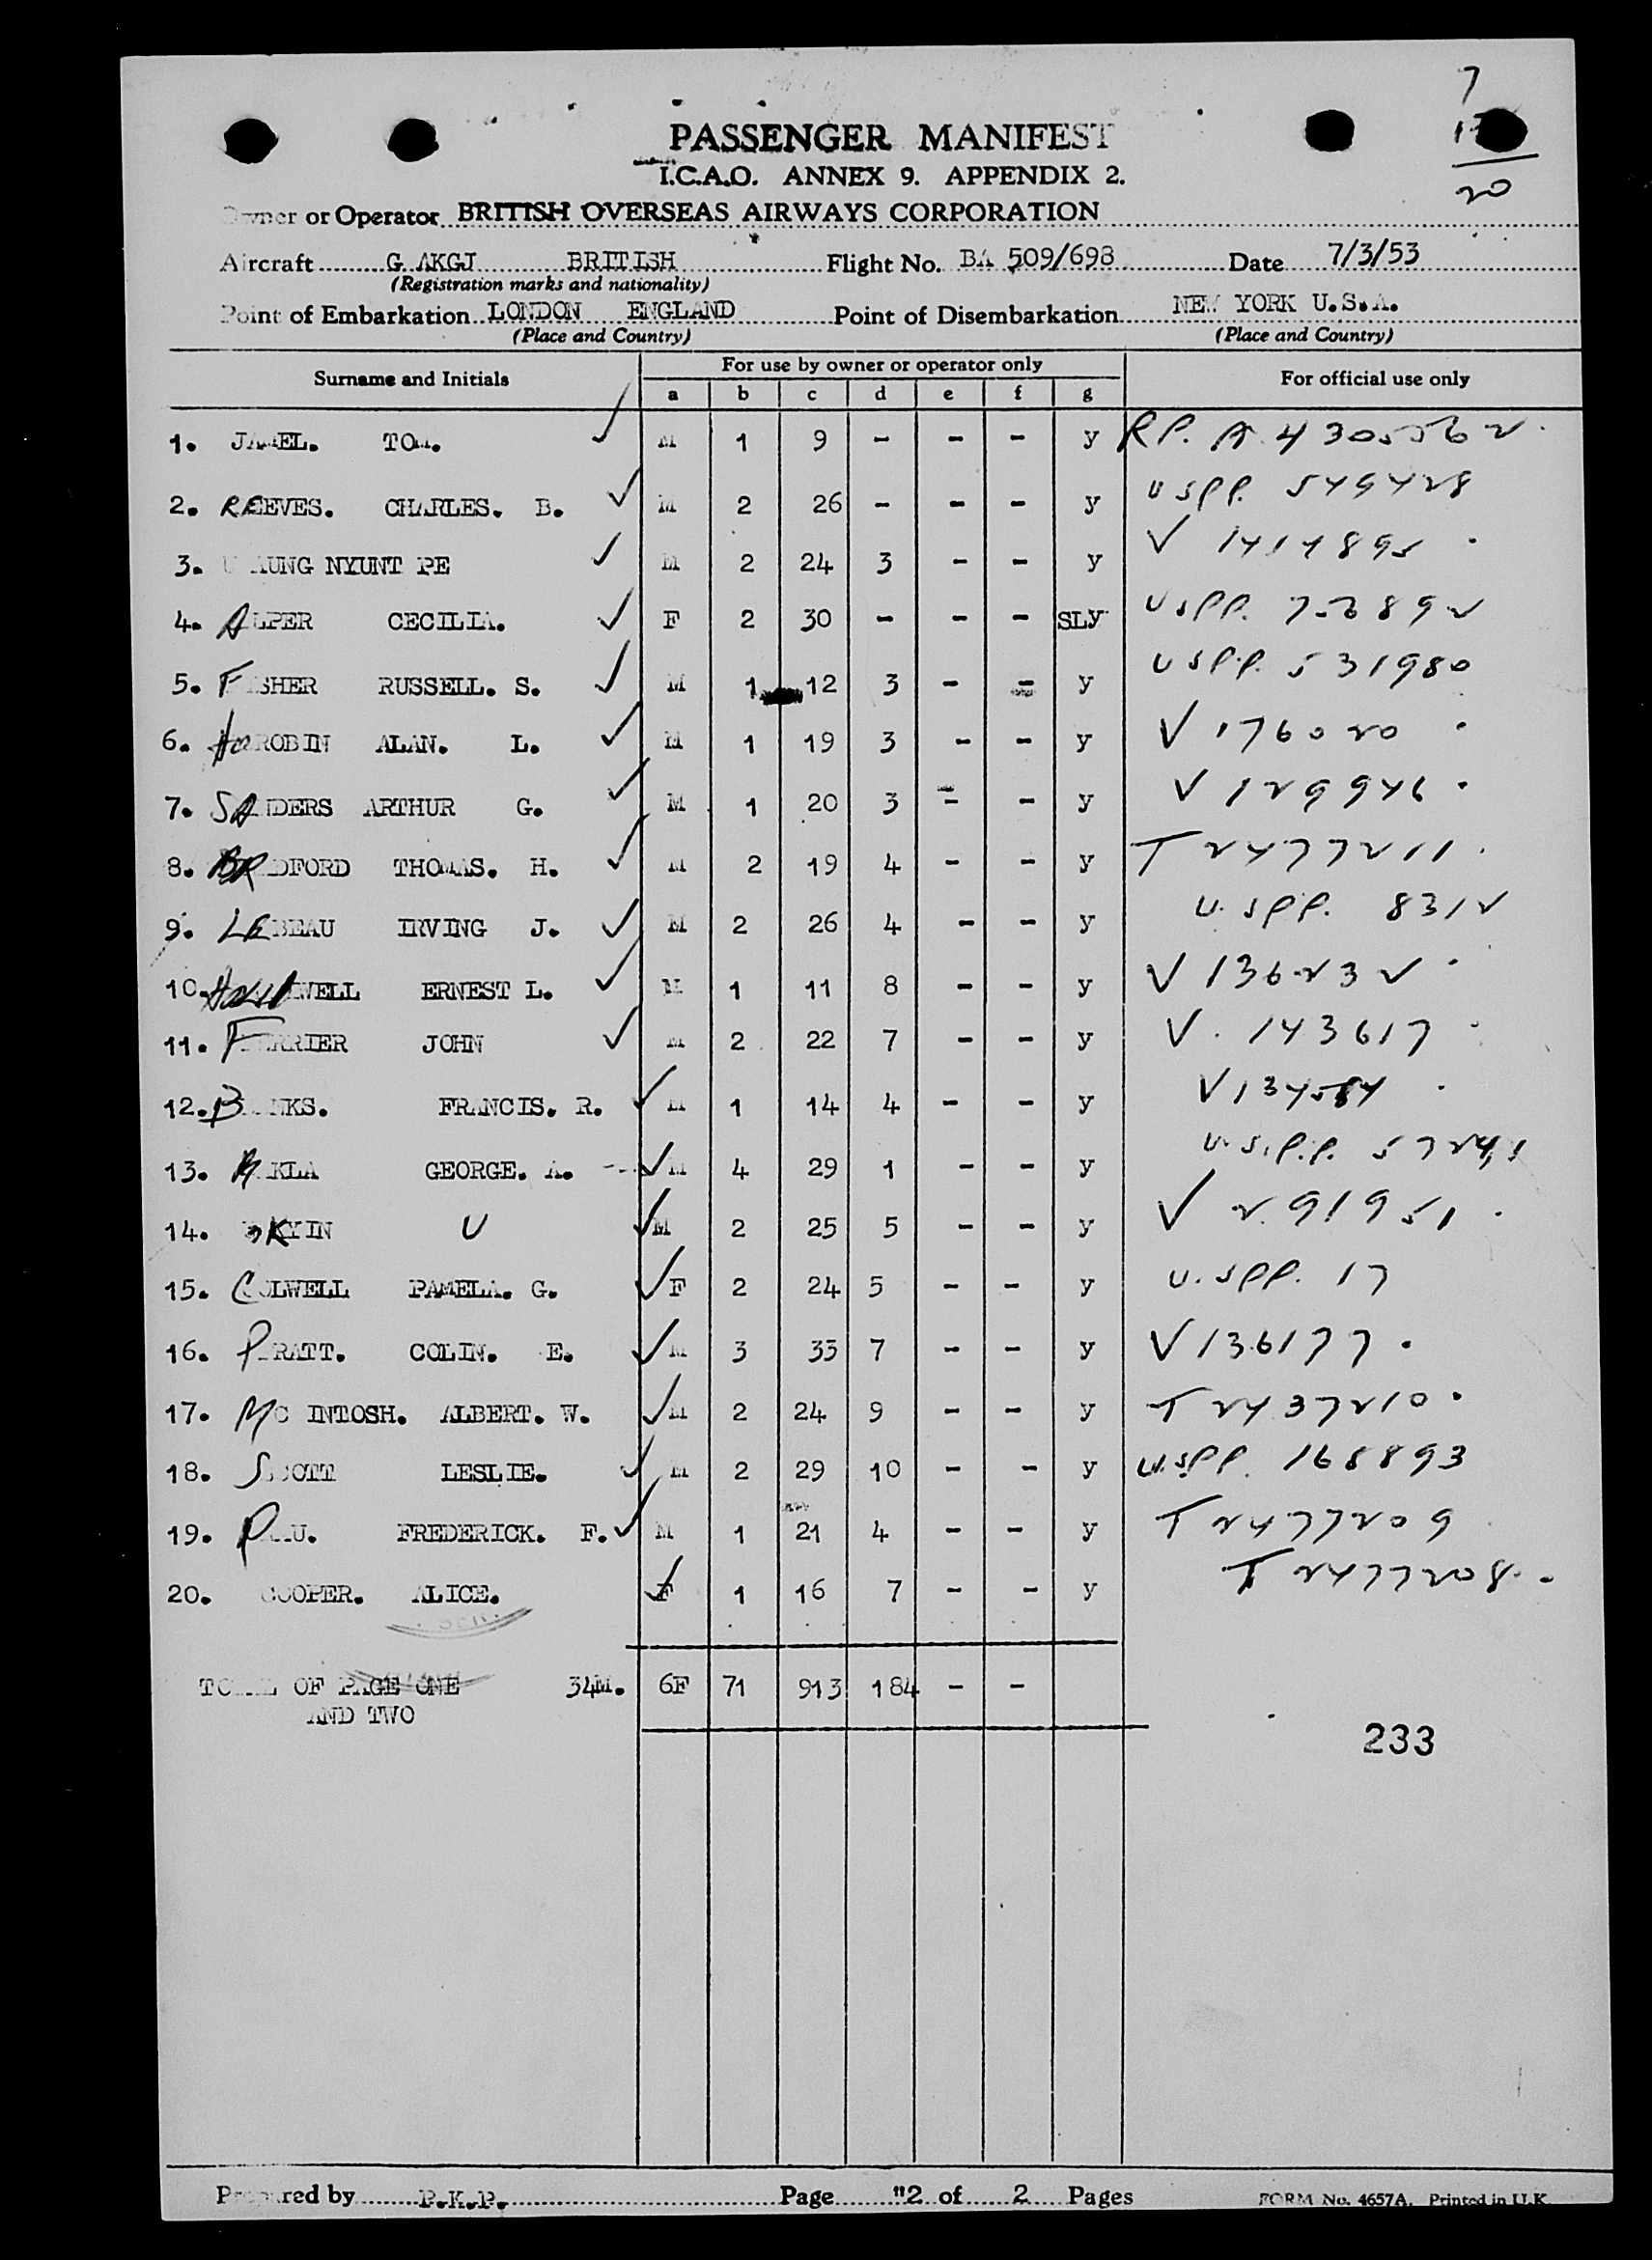 7
20
PASSENGER MANIFEST
I.C.A.O. ANNEX 9. APPENDIX 2.
Owner or Operator BRITISH OVERSEAS AIRWAYS CORPORATION
Aircraft G AKGJ BRITISH Flight No. BA 509/698 Date 7/3/53
(Registration marks and nationality)
Point of Embarkation LONDON ENGLAND Point of Disembarkation NEW YORK U.S.A.
(Place and Country) (Place and Country)
Surname and Initials For use by owner or operator only For official use only
a b c d e f g
1. JAMEL. TOM. M 1 9 - - - y R.P. A 4305562
2. REEVES. CHARLES. B. M 2 26 - - - y U S P.P. 549428
3. U AUNG NYUNT PE M 2 24 3 - - y V 1414895
4. ALPER CECILIA. F 2 30 - - - SLy U S P.P.
5. FISHER RUSSELL. S. M 1 12 3 - - y U S P.P. 531980
6. HARROBIN ALAN. L. M 1 19 3 - - y V 176020
7. SANDERS ARTHUR G. M 1 20 3 - - y V 129946
8. BRADFORD THOMAS. H. M 2 19 4 - - y T 2477211
9. LEBEAU IRVING J. M 2 26 4 - - y U.S P.P. 8312
10. WELL ERNEST L. M 1 11 8 - - y V 136232
11. FERRIER JOHN M 2 22 7 - - y V. 143617
12. BANKS. FRANCIS. R. M 1 14 4 - - y V 134584
13. KLA GEORGE. A. M 4 29 1 - - y U.S.P.P.
14. KYIN U M 2 25 5 - - y V 291951
15. COLWELL PAMELA. G. F 2 24 5 - - y U.S P.P. 17
16. PRATT. COLIN. E. M 3 33 7 - - y V 136177
17. MC INTOSH. ALBERT. W. M 2 24 9 - - y T 2437210
18. SCOTT LESLIE. M 2 29 10 - - y U.S.P.P. 168893
19. FREDERICK. F. M 1 21 4 - - y T 2477209
20. COOPER. ALICE. F 1 16 7 - - y T 2477208
TOTAL OF PAGE ONE 34M. 6F 71 913 184 - -
AND TWO
233
Prepared by P.K.P. Page "2 of 2 Pages FORM No. 4657A. Printed in U.K.